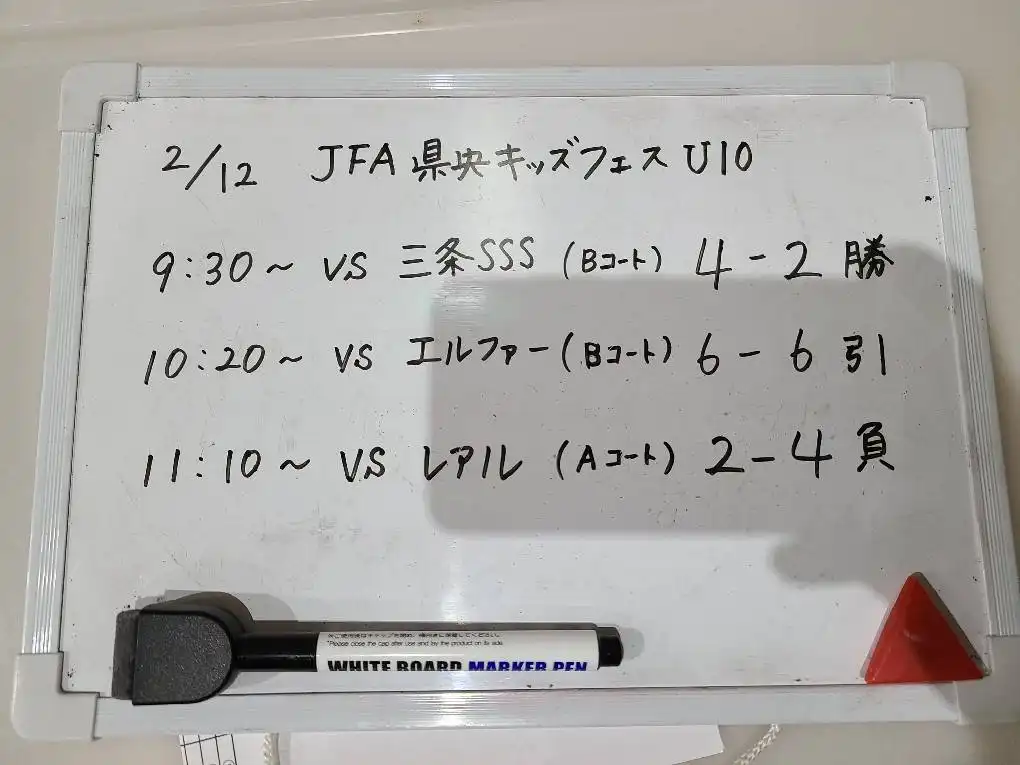 2/12 JFA 県央キッズフェス U10
9:30～ VS 三条SSS (Bコート) 4-2 勝
10:20～ VS エルファー(Bコート) 6-6 引
11:10～ VS レアル (Aコート) 2-4 負
※ご使用後はキャップを閉め、横向きに保管してください。
*Please close the cap after use and lay the product on its side.
WHITE BOARD MARKER PEN